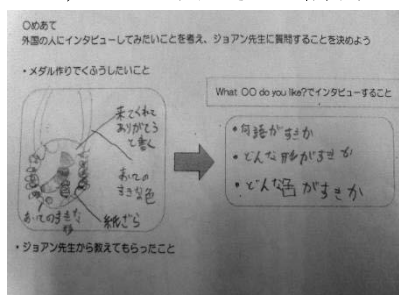 ○めあて
外国の人にインタビューしてみたいことを考え、ジョアン先生に質問することを決めよう
・メダル作りでくふうしたいこと
来てくれて
ありがとう
って書く
あいての
すきな色
紙ざら
あいてのすきな
形
What ○○ do you like?でインタビューすること
・何語がすきか
・どんな形がすきか
・どんな色がすきか
・ジョアン先生から教えてもらったこと